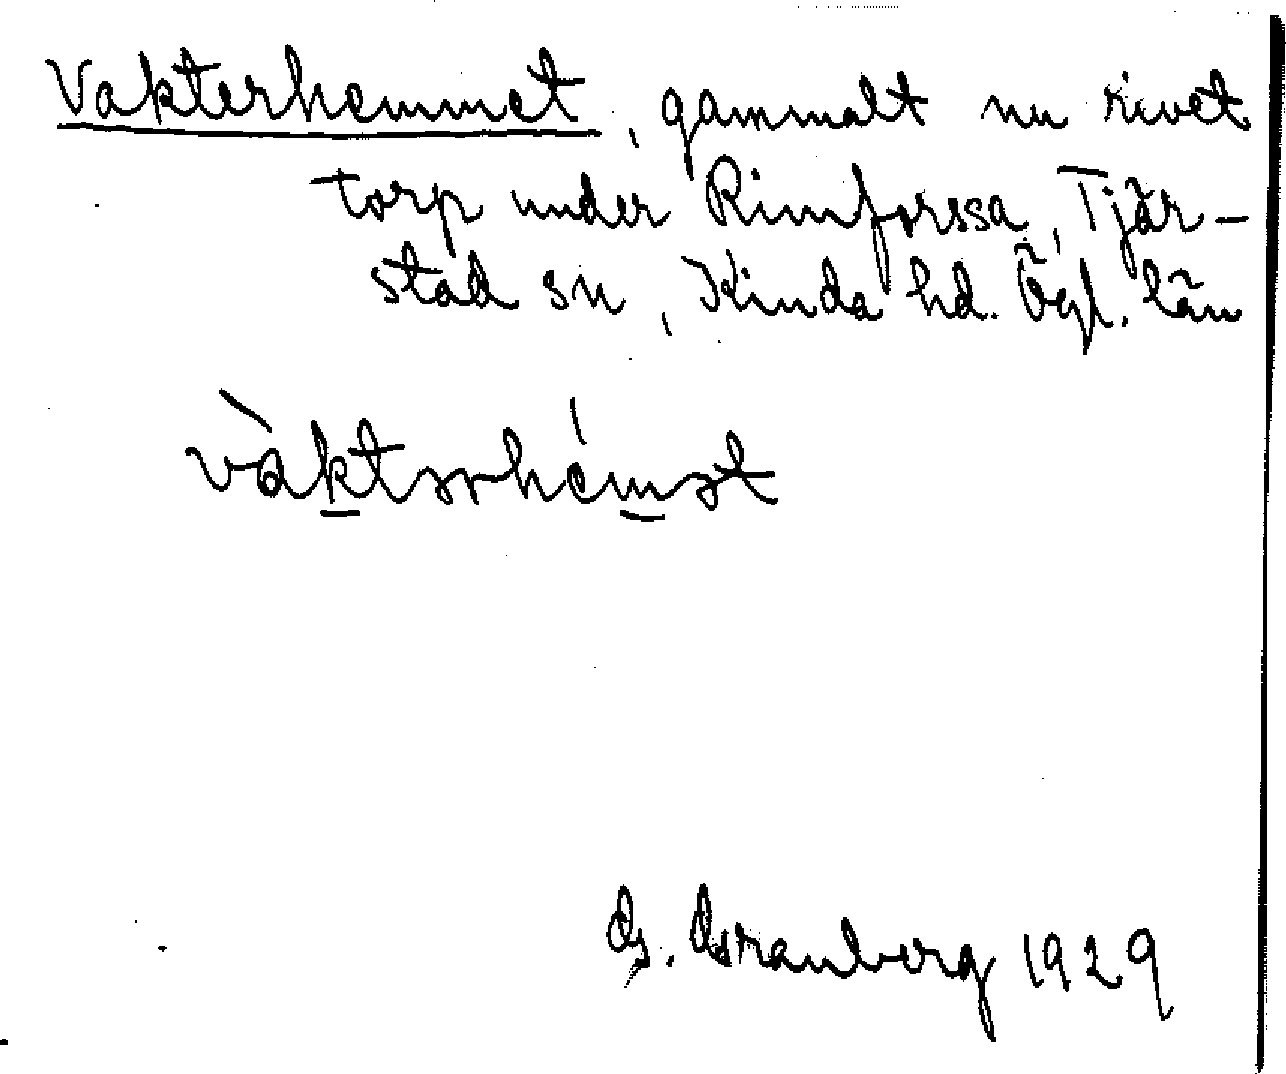 Vakterhemmet, gammalt nu rivet
torp under Rimforssa, Tjär-
stad sn, Kinda hd. Ögl. län
vàktərhémət
G. Granberg 1929